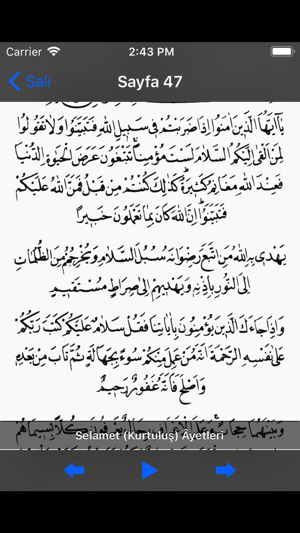 Carrier 2:43 PM
Salı
Sayfa 47
يَآ اَيُّهَا الَّذِينَ اٰمَنُوا اِذَا ضَرَبْتُمْ فِي سَبِيلِ اللّٰهِ فَتَبَيَّنُوا وَلَا تَقُولُوا
لِمَنْ اَلْقٰٓى اِلَيْكُمُ السَّلَامَ لَسْتَ مُؤْمِنًا تَبْتَغُونَ عَرَضَ الْحَيٰوةِ الدُّنْيَا
فَعِنْدَ اللّٰهِ مَغَانِمُ كَثِيرَةٌ كَذٰلِكَ كُنْتُمْ مِنْ قَبْلُ فَمَنَّ اللّٰهُ عَلَيْكُمْ
فَتَبَيَّنُوا اِنَّ اللّٰهَ كَانَ بِمَا تَعْمَلُونَ خَبِيرًا
يَهْدِي بِهِ اللّٰهُ مَنِ اتَّبَعَ رِضْوَانَهُ سُبُلَ السَّلَامِ وَيُخْرِجُهُمْ مِنَ الظُّلُمَاتِ
اِلَى النُّورِ بِاِذْنِهِ وَيَهْدِيهِمْ اِلٰى صِرَاطٍ مُسْتَقِيمٍ
وَاِذَا جَآءَكَ الَّذِينَ يُؤْمِنُونَ بِاٰيَاتِنَا فَقُلْ سَلَامٌ عَلَيْكُمْ كَتَبَ رَبُّكُمْ
عَلٰى نَفْسِهِ الرَّحْمَةَ اَنَّهُ مَنْ عَمِلَ مِنْكُمْ سُوٓءًا بِجَهَالَةٍ ثُمَّ تَابَ مِنْ بَعْدِهِ
وَاَصْلَحَ فَاَنَّهُ غَفُورٌ رَحِيمٌ
وَبَيْنَهُمَا حِجَابٌ وَعَلَى الْاَعْرَافِ رِجَالٌ يَعْرِفُونَ كُلًّا بِسِيمٰيهُمْ
Selamet (Kurtuluş) Âyetleri